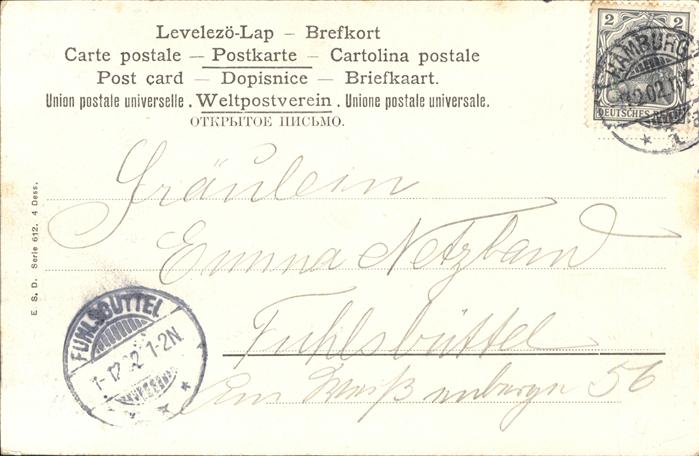 Levelezö-Lap – Brefkort
Carte postale – Postkarte – Cartolina postale
Post card – Dopisnice – Briefkaart.
Union postale universelle . Weltpostverein . Unione postale universale.
ОТКРЫТОЕ ПИСЬМО.
2 2
HAMBURG
DEUTSCHES REICH
E. S. D. Serie 612. 4 Dess.
Fräulein
Emma Netzband
Fuhlsbüttel
Am 56
FUHLSBÜTTEL
1-12 02 1-2N